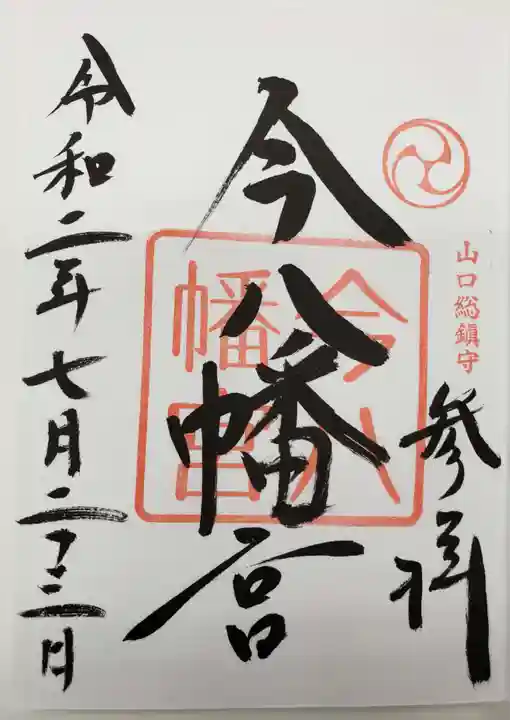 山口総鎮守
参拝
今八幡宮
今八幡宮
令和二年七月二十三日